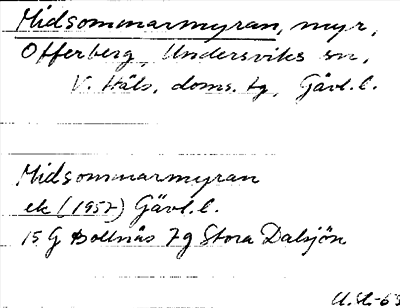 Midsommarmyran, myr,
Offerberg, Undersviks sn,
V. Häls. doms. tg, Gävl. l.
Midsommarmyran
ek (1957) Gävl. l.
15 G Bollnäs 7 g Stora Dalsjön